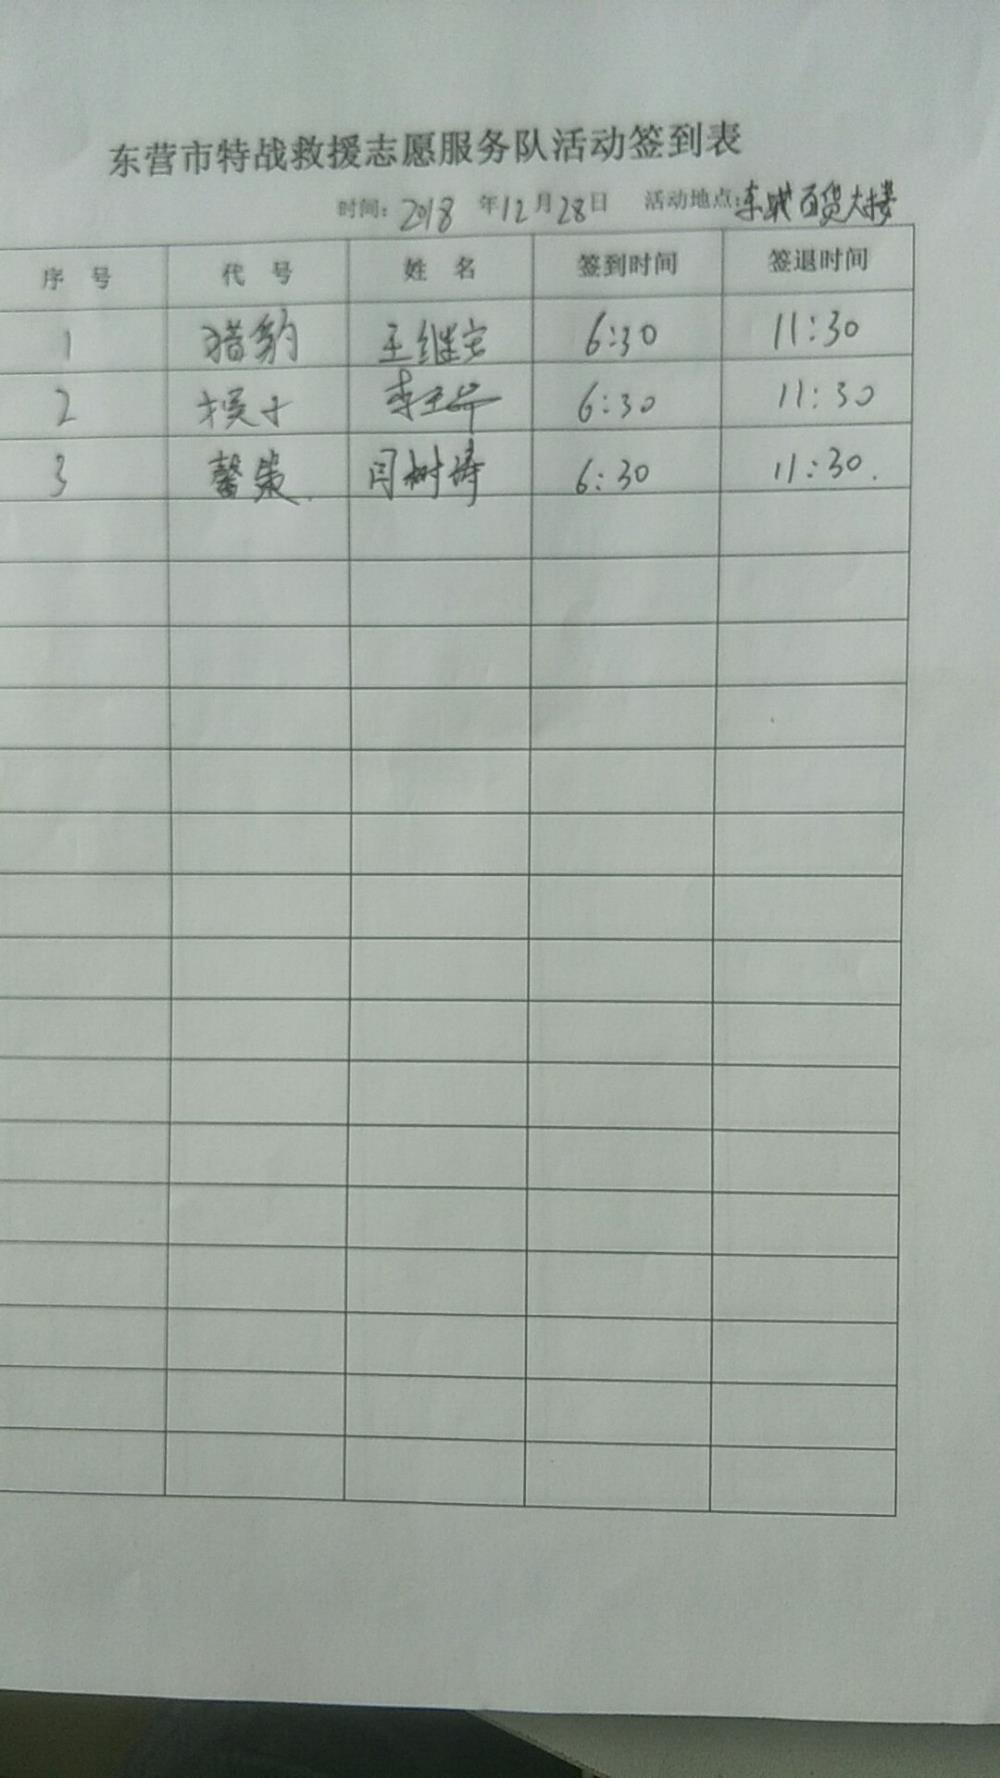 东营市特战救援志愿服务队活动签到表
时间: 2018 年12月28日 活动地点:东城百货大楼
序 号 代 号 姓 名 签到时间 签退时间
1 猎豹 王继宝 6:30 11:30
2 6:30 11:30
3 馨 闫树涛 6:30 11:30.